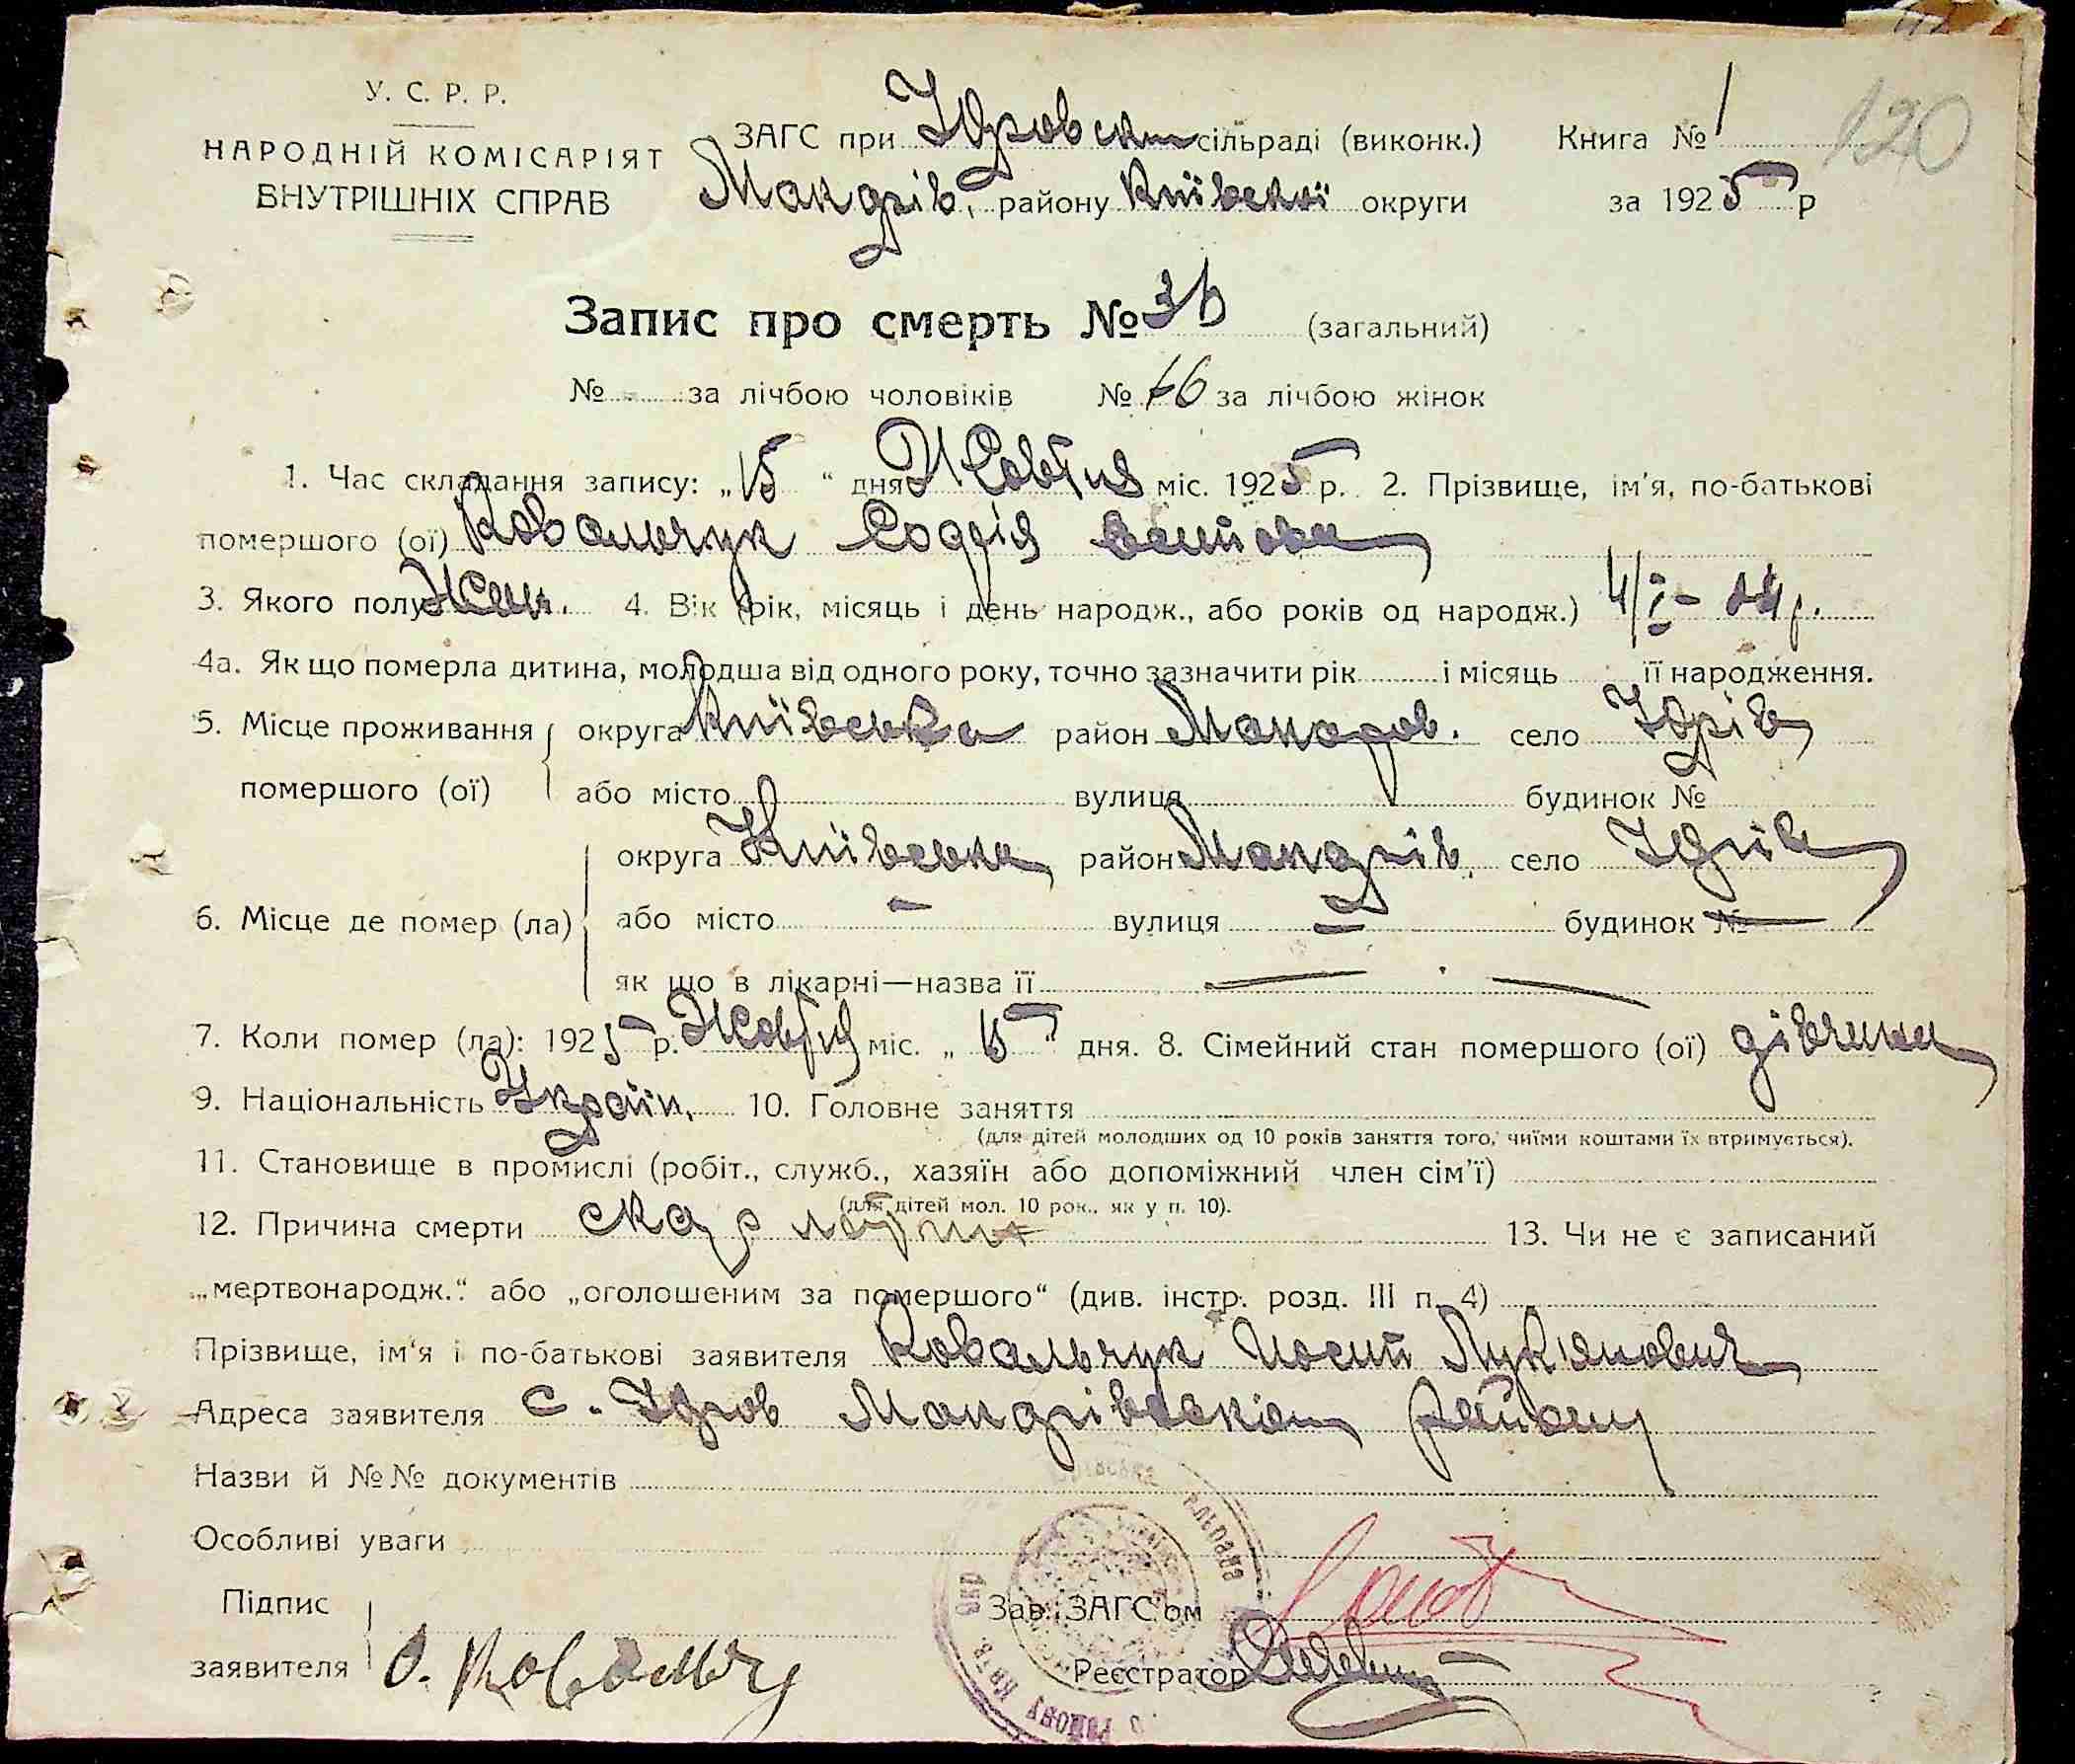 120
У. С. Р. Р.
НАРОДНІЙ КОМІСАРІЯТ
ВНУТРІШНІХ СПРАВ
ЗАГС при Юровськ сільраді (виконк.) Книга № 1
Макарів. району Київської округи за 1925 р
Запис про смерть № 36 (загальний)
№ за лічбою чоловіків № 16 за лічбою жінок
1. Час складання запису: „15“ дня Жовтня міс. 1925 р. 2. Прізвище, ім'я, по-батькові
помершого (ої) Ковальчук Софія
3. Якого полу Жін. 4. Вік (рік, місяць і день народж., або років од народж.) 4/I - 14 р.
4а. Як що померла дитина, молодша від одного року, точно зазначити рік і місяць її народження.
5. Місце проживання округа Київська район Макаров. село Юрів
помершого (ої) або місто вулиця будинок №
округа Київська район Макарів. село Юрів
6. Місце де помер (ла) або місто — вулиця — будинок № —
як що в лікарні—назва її — —
7. Коли помер (ла): 1925 р. Жовтня міс. „15“ дня. 8. Сімейний стан помершого (ої) дівчина
9. Національність Україн. 10. Головне заняття
(для дітей молодших од 10 років заняття того, чиїми коштами їх втримується).
11. Становище в промислі (робіт., служб., хазяїн або допоміжний член сім'ї)
(для дітей мол. 10 рок., як у п. 10).
12. Причина смерти скарлатина 13. Чи не є записаний
„мертвонародж.“ або „оголошеним за помершого“ (див. інстр. розд. III п. 4)
Прізвище, ім'я і по-батькові заявителя Ковальчук Йосип Лук'янович
Адреса заявителя с. Юров Макарівského району
Назви й №№ документів
Особливі уваги
Підпис
заявителя О. Ковальчу
Зав. ЗАГС'ом
Реєстратор